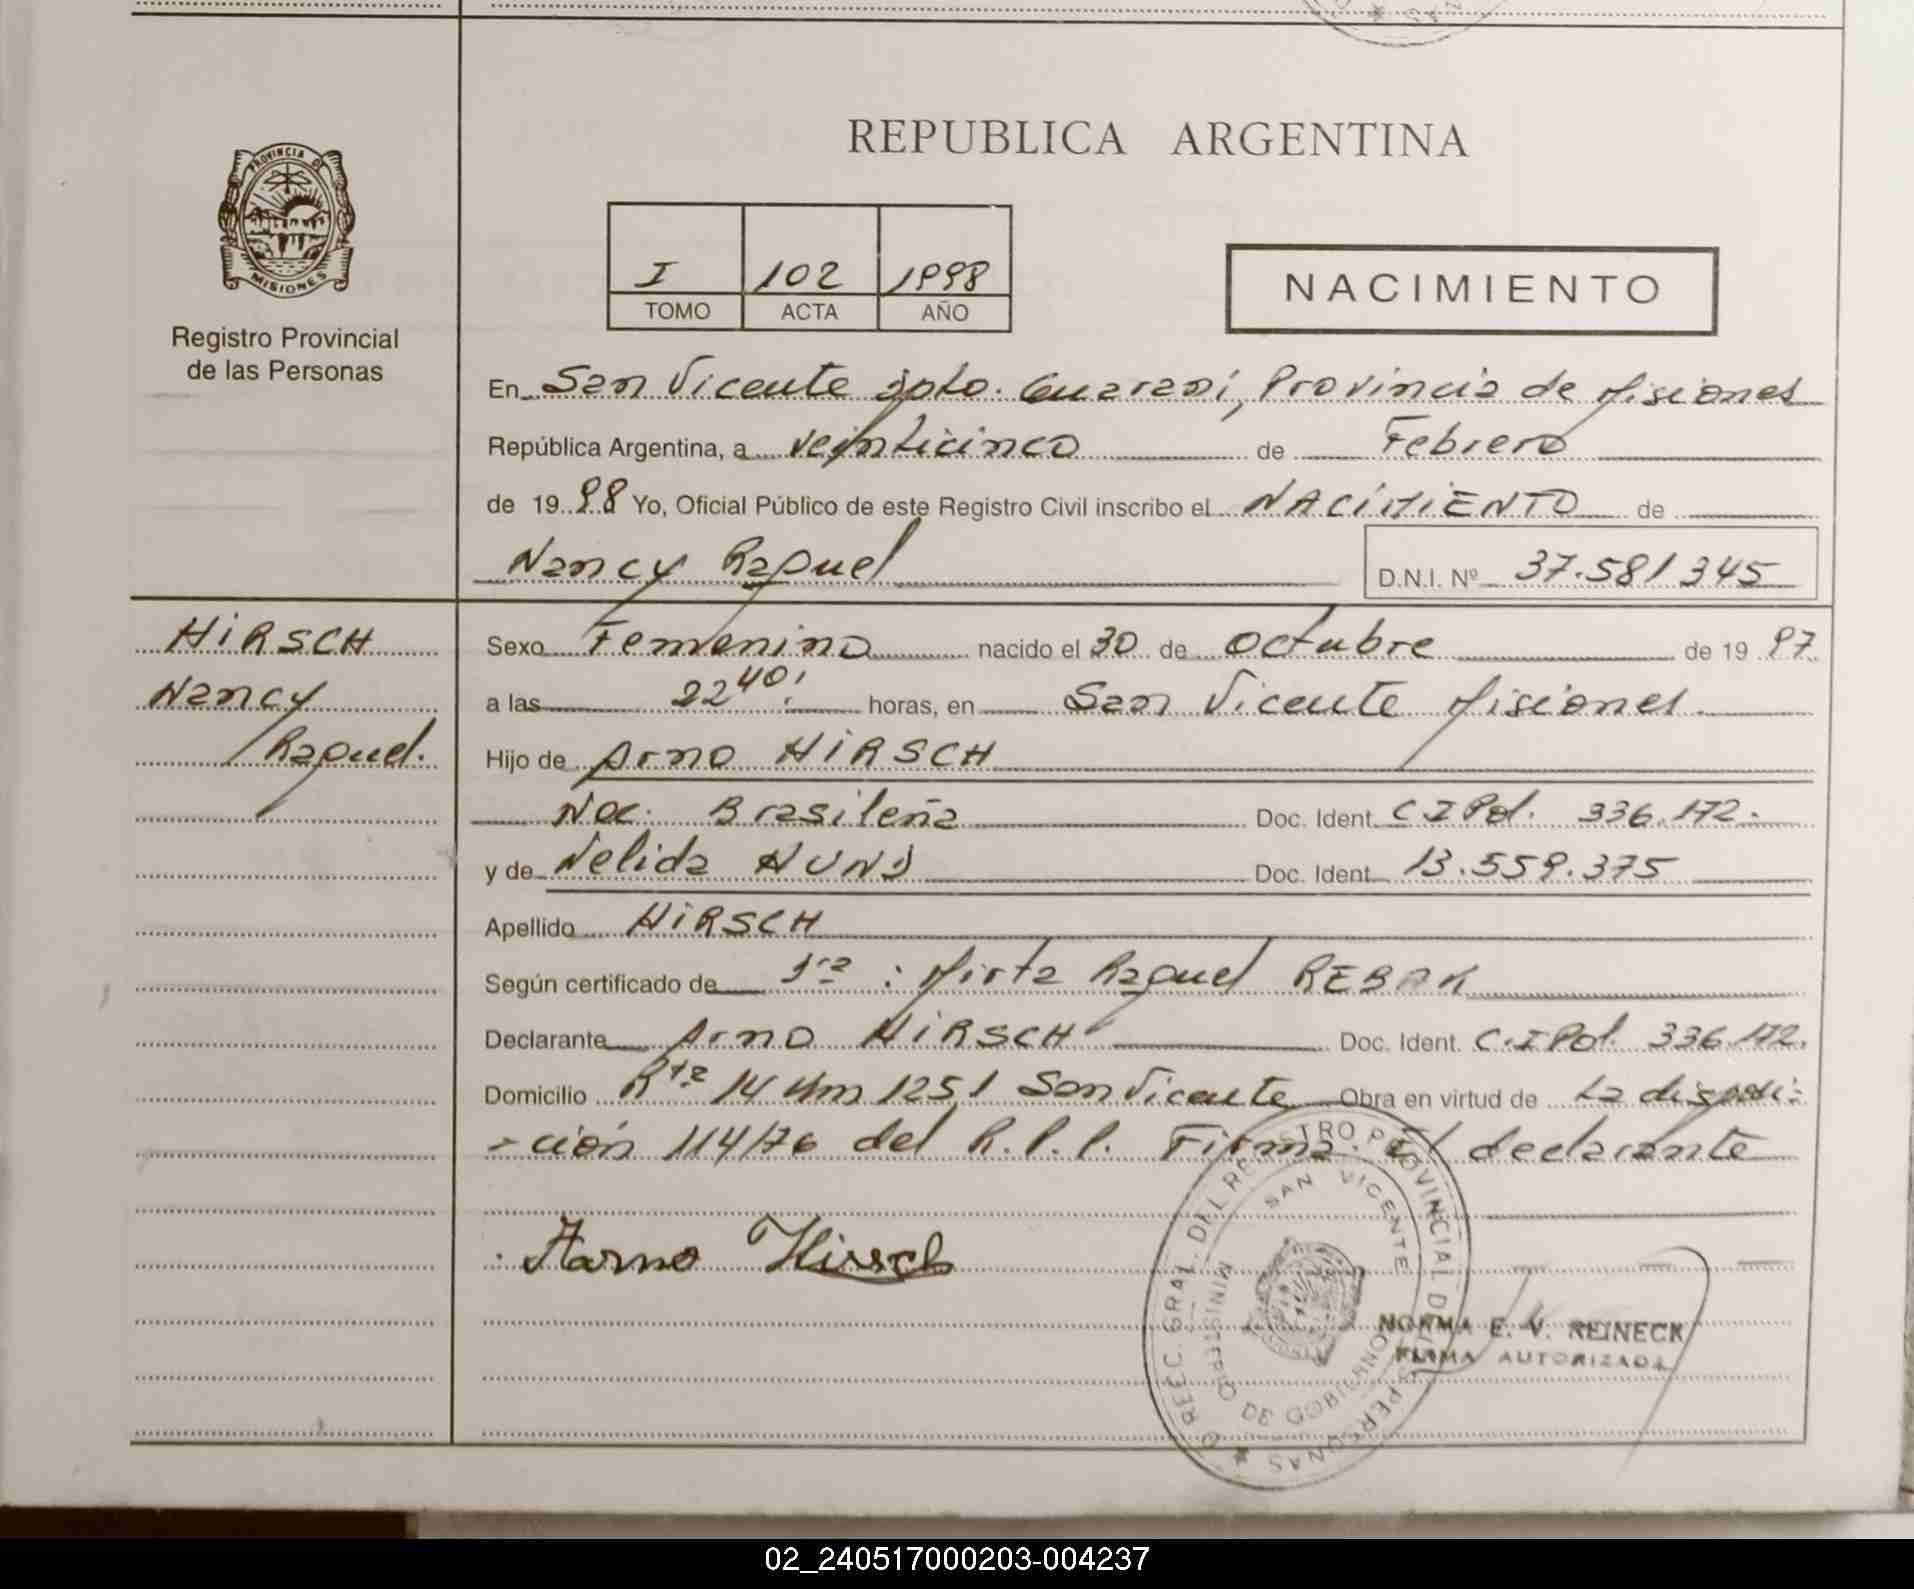 REPUBLICA ARGENTINA
PROVINCIA DE
MISIONES
Registro Provincial
de las Personas
I 102 1998
TOMO ACTA AÑO
NACIMIENTO
En San Vicente Dpto. Guaraní, Provincia de Misiones
República Argentina, a veinticinco de Febrero
de 19 98 Yo, Oficial Público de este Registro Civil inscribo el NACIMIENTO de
Nancy Raquel D.N.I. Nº 37.581345
HIRSCH
Nancy
Raquel.
Sexo Femenino nacido el 30 de Octubre de 19 97
a las 22 40' horas, en San Vicente Misiones
Hijo de Arno HIRSCH
Nac. Brasileña Doc. Ident. C I Pol. 336.172.
y de Nelida HUND Doc. Ident. 13.559.375
Apellido HIRSCH
Según certificado de : Mirta Raquel REBAK
Declarante Arno HIRSCH Doc. Ident. C.I Pol. 336.172.
Domicilio Rta 14 Km 1251 San Vicente Obra en virtud de La disposi-
-ción 114/76 del R.P.P. Firma: El declarante
Aarno Hirsch
DIREC. GRAL. DEL REGISTRO PROVINCIAL DE LAS PERSONAS
SAN VICENTE
MINISTERIO DE GOBIERNO
NORMA E. V. REINECK
FIRMA AUTORIZADA
02_240517000203-004237